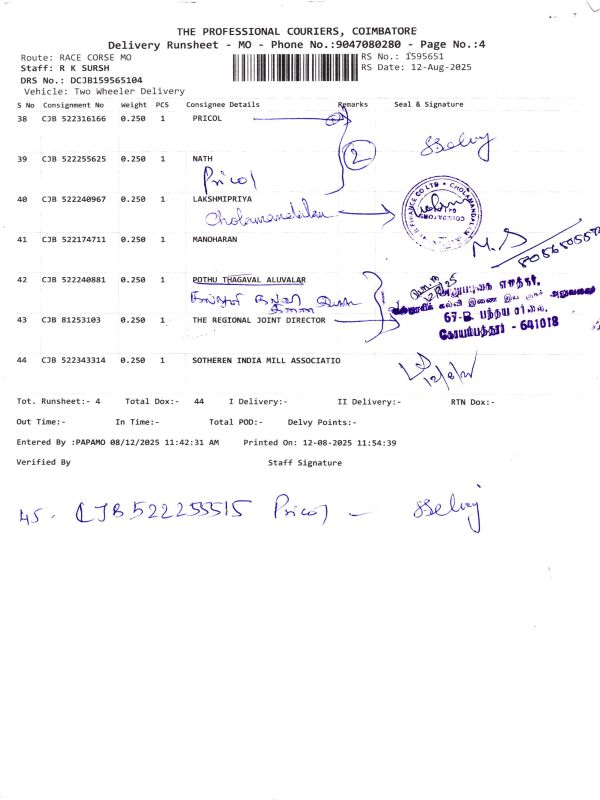 THE PROFESSIONAL COURIERS, COIMBATORE
Delivery Runsheet - MO - Phone No.:9047080280 - Page No.:4
Route: RACE CORSE MO RS No.: 1595651
Staff: R K SURSH RS Date: 12-Aug-2025
DRS No.: DCJB159565104
Vehicle: Two Wheeler Delivery
S No Consignment No Weight PCS Consignee Details Remarks Seal & Signature
38 CJB 522316166 0.250 1 PRICOL
2
39 CJB 522255625 0.250 1 NATH
Pricol
40 CJB 522240967 0.250 1 LAKSHMIPRIYA
Cholamandalam
41 CJB 522174711 0.250 1 MANOHARAN
M. S
42 CJB 522240881 0.250 1 POTHU THAGAVAL ALUVALAR
12/8/25
43 CJB 81253103 0.250 1 THE REGIONAL JOINT DIRECTOR
67-B, பந்தய சாலை,
கோயம்புத்தூர் - 641018
44 CJB 522343314 0.250 1 SOTHEREN INDIA MILL ASSOCIATIO
12/8/25
Tot. Runsheet:- 4 Total Dox:- 44 I Delivery:- II Delivery:- RTN Dox:-
Out Time:- In Time:- Total POD:- Delvy Points:-
Entered By :PAPAMO 08/12/2025 11:42:31 AM Printed On: 12-08-2025 11:54:39
Verified By Staff Signature
45. CJB 522253515 Pricol -